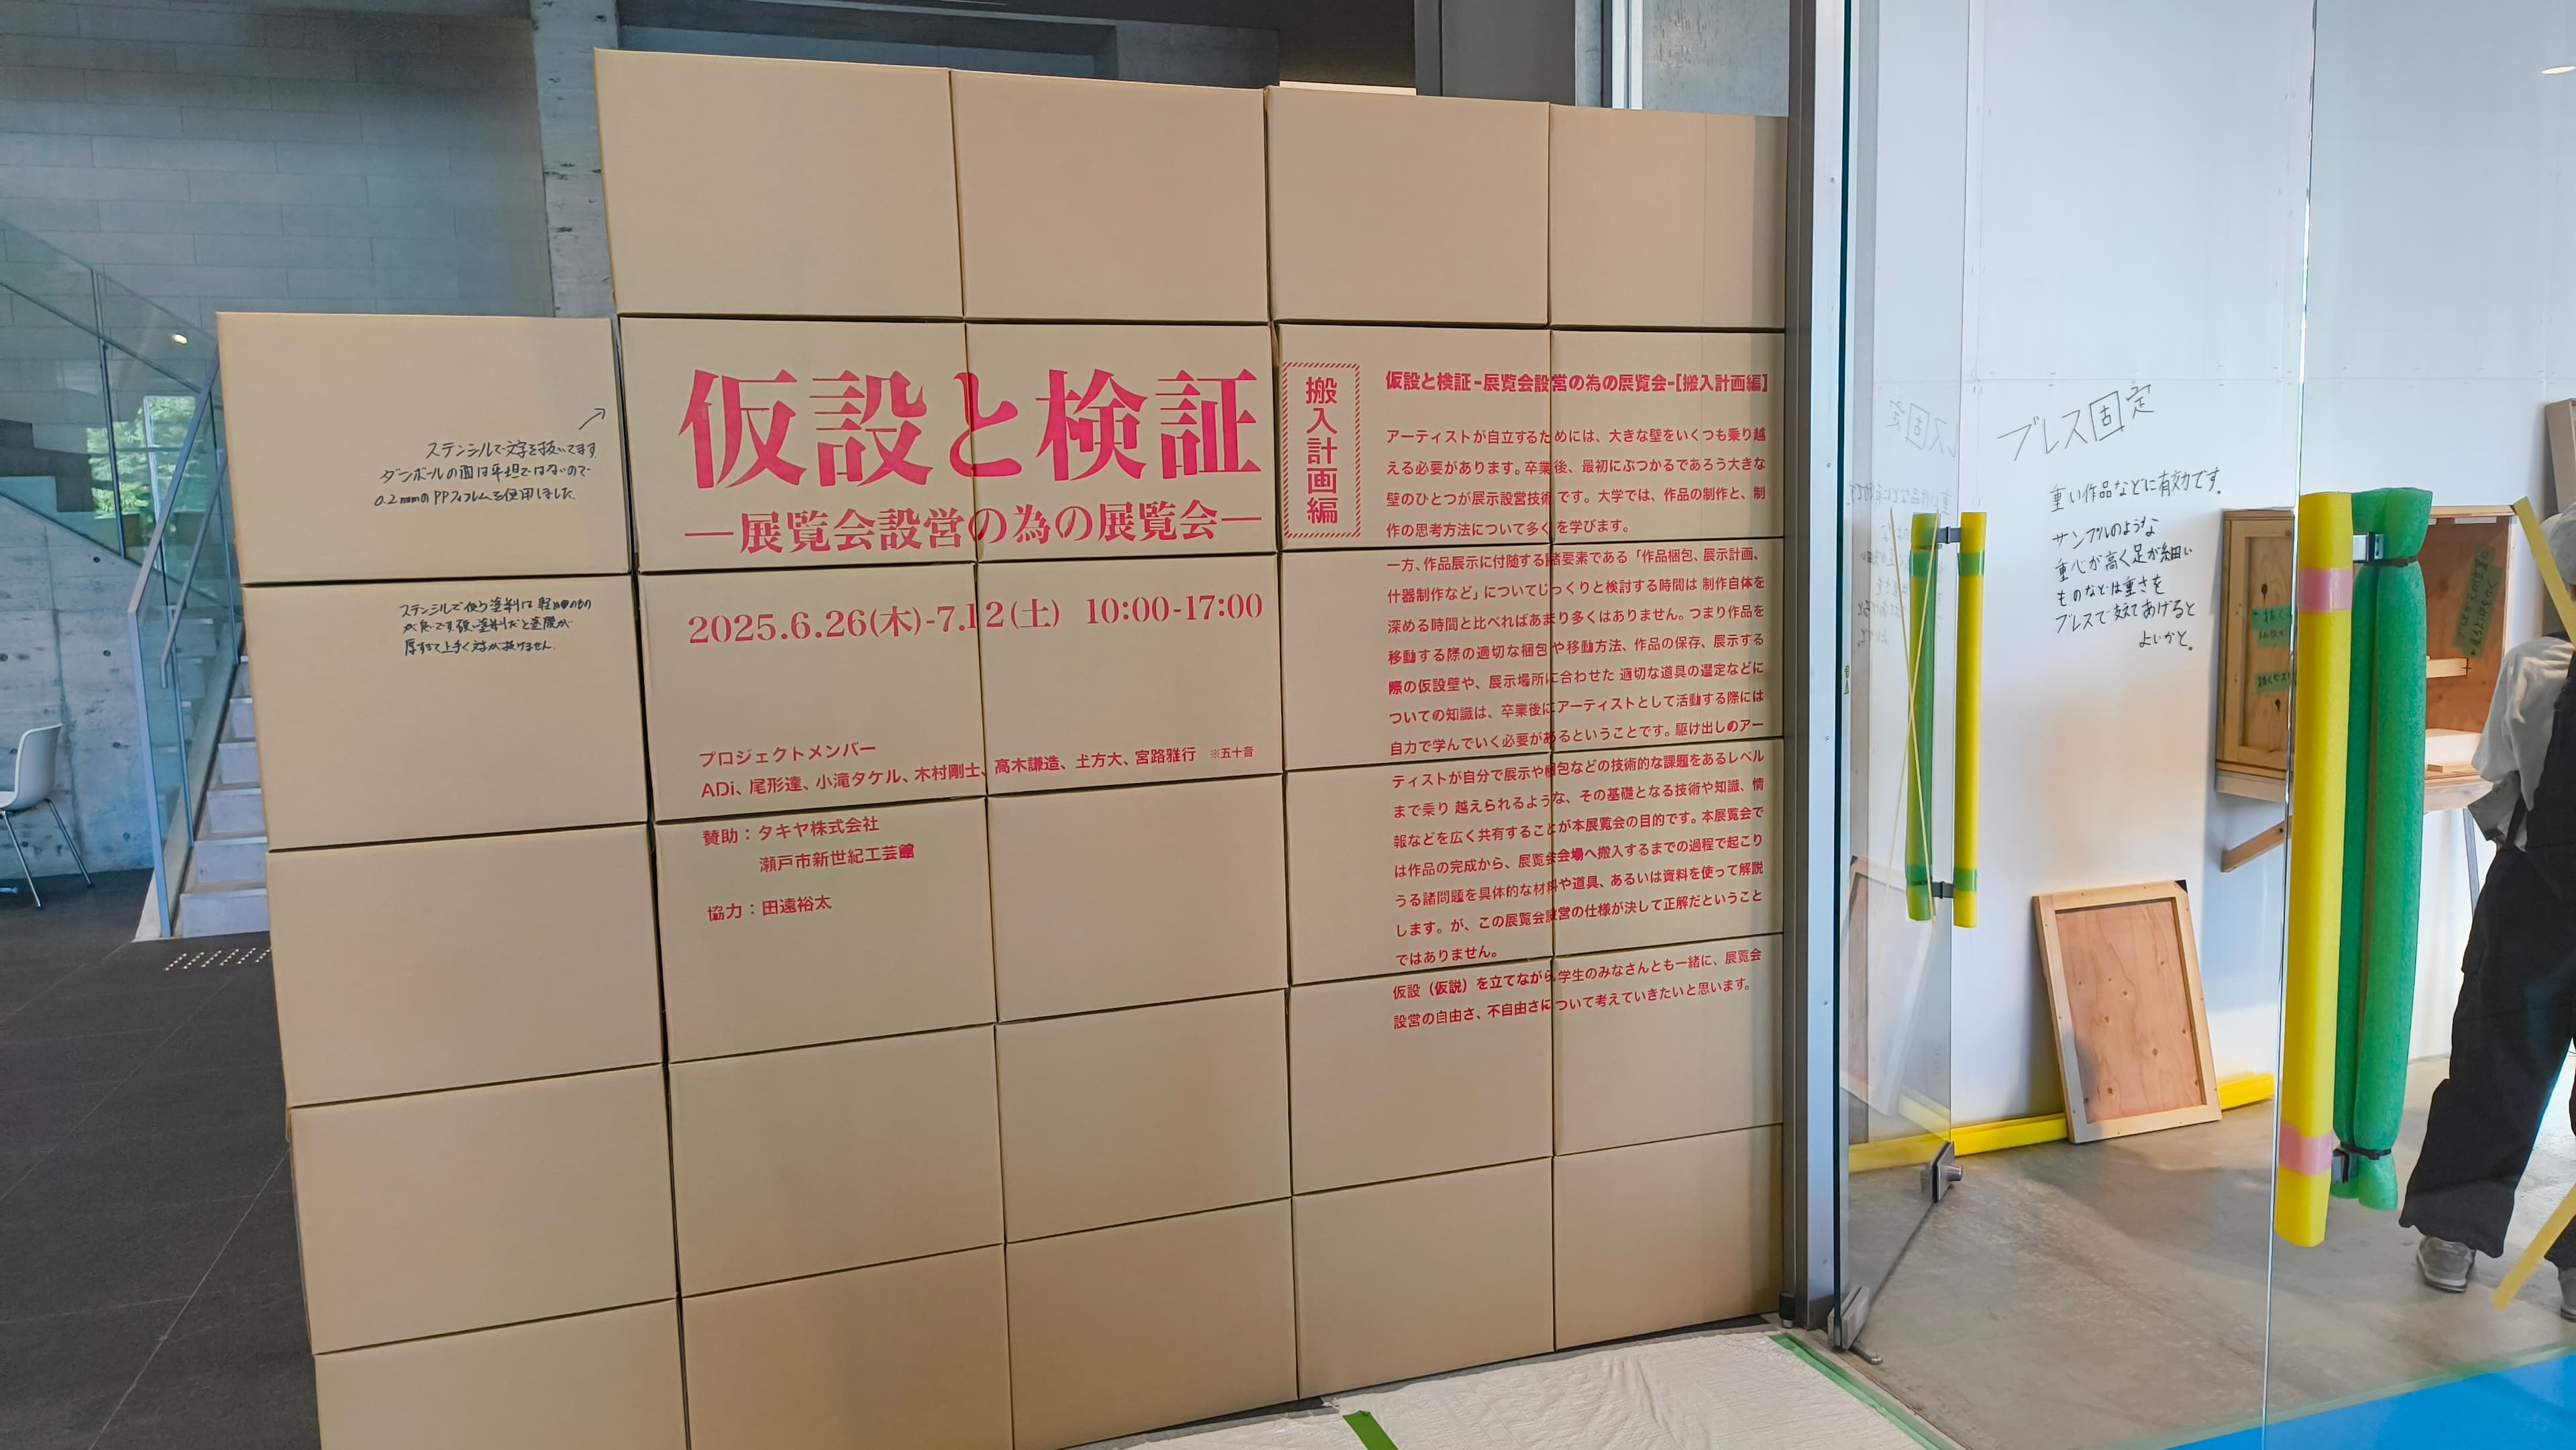 ステンシルで文字を抜いてます
ダンボールの面は平坦ではないので
0.2mmのPPフィルムを使用しました。
ステンシルで使う塗料は軽めのもの
が良いです。硬い塗料だと塗膜が
厚すぎて上手く文字が抜けません。
仮設と検証
—展覧会設営の為の展覧会—
搬入計画編
2025.6.26(木)-7.12(土) 10:00-17:00
プロジェクトメンバー
ADi、尾形達、小滝タケル、木村剛士、高木謙造、土方大、宮路雅行 ※五十音
賛助：タキヤ株式会社
瀬戸市新世紀工芸館
協力：田遠裕太
仮設と検証-展覧会設営の為の展覧会-[搬入計画編]
アーティストが自立するためには、大きな壁をいくつも乗り越
える必要があります。卒業後、最初にぶつかるであろう大きな
壁のひとつが展示設営技術です。大学では、作品の制作と、制
作の思考方法について多くを学びます。
一方、作品展示に付随する諸要素である「作品梱包、展示計画、
什器制作など」についてじっくりと検討する時間は 制作自体を
深める時間と比べればあまり多くはありません。つまり作品を
移動する際の適切な梱包や移動方法、作品の保存、展示する
際の仮設壁や、展示場所に合わせた 適切な道具の選定などに
ついての知識は、卒業後にアーティストとして活動する際には
自力で学んでいく必要があるということです。駆け出しのアー
ティストが自分で展示や梱包などの技術的な課題をあるレベル
まで乗り 越えられるような、その基礎となる技術や知識、情
報などを広く共有することが本展覧会の目的です。本展覧会で
は作品の完成から、展覧会会場へ搬入するまでの過程で起こり
うる諸問題を具体的な材料や道具、あるいは資料を使って解説
します。が、この展覧会設営の仕様が決して正解だということ
ではありません。
仮設（仮説）を立てながら学生のみなさんとも一緒に、展覧会
設営の自由さ、不自由さについて考えていきたいと思います。
ブレス固定
重い作品などに有効です。
サンプルのような
重心が高く足が細い
ものなどは重さを
ブレスで支えてあげると
よいかと。